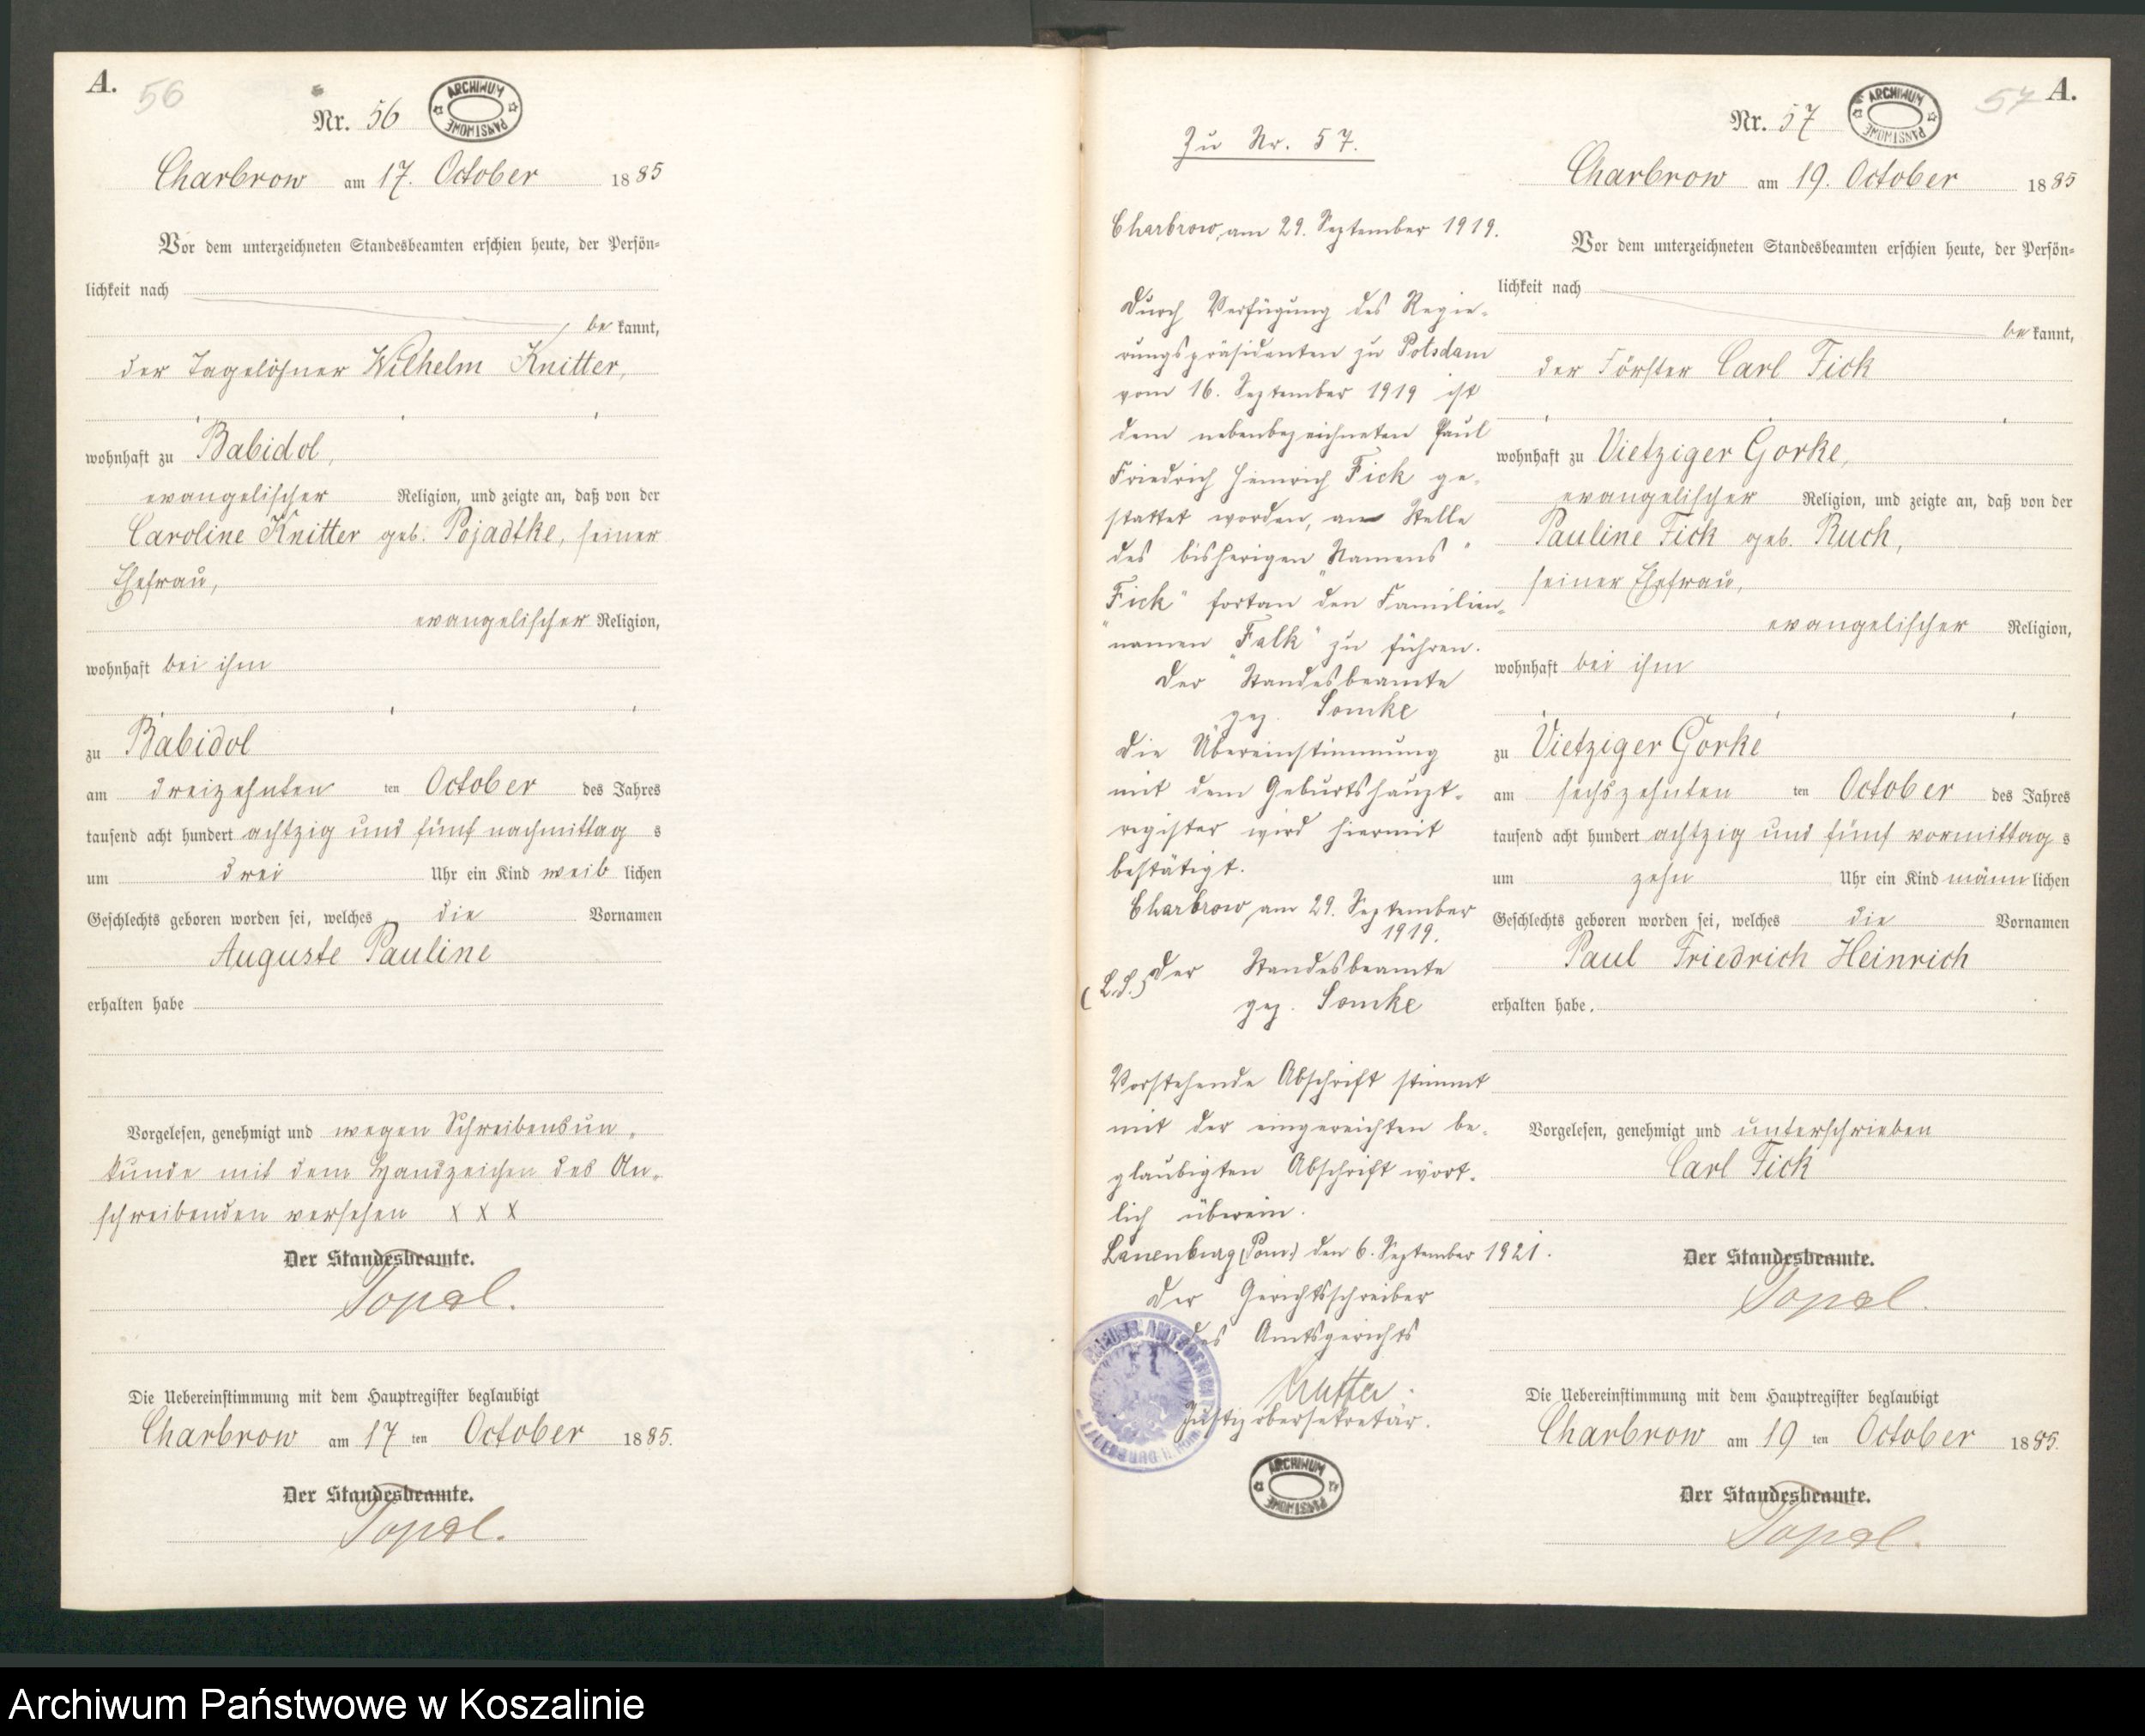 A.
56
Nr. 56
ARCHIWUM PAŃSTWOWE
Charbrow am 17. October 1885
Vor dem unterzeichneten Standesbeamten erschien heute, der Persön-
lichkeit nach
be kannt,
der Tagelöhner Wilhelm Knitter,
wohnhaft zu Babidol,
evangelischer Religion, und zeigte an, daß von der
Caroline Knitter geb. Pojadtke, seiner
Ehefrau,
evangelischer Religion,
wohnhaft bei ihm
zu Babidol
am dreizehnten ten October des Jahres
tausend acht hundert achtzig und fünf nachmittag s
um drei Uhr ein Kind weib lichen
Geschlechts geboren worden sei, welches die Vornamen
Auguste Pauline
erhalten habe
Vorgelesen, genehmigt und wegen Schreibensun-
kunde mit dem Handzeichen des An-
schreibenden versehen x x x
Der Standesbeamte.
Die Uebereinstimmung mit dem Hauptregister beglaubigt
Charbrow am 17 ten October 1885.
Der Standesbeamte.
Zu Nr. 57.
Charbrow, am 29. September 1919.
Durch Verfügung des Regie-
rungspräsidenten zu Potsdam
vom 16. September 1919 ist
dem nebenbezeichneten Paul
Friedrich Heinrich Fick ge-
stattet worden, an Stelle
des bisherigen Namens "
Fick" fortan den Familien-
namen "Falk" zu führen.
Der Standesbeamte
gez. Somke
Die Übereinstimmung
mit dem Geburtshaupt-
register wird hiermit
bestätigt.
Charbrow, am 29. September
1919.
(L.S.) Der Standesbeamte
gez. Somke
Vorstehende Abschrift stimmt
mit der eingereichten be-
glaubigten Abschrift wört-
lich überein.
Lauenburg (Pom.) den 6. September 1921.
Der Gerichtsschreiber
des Amtsgerichts
Justizobersekretär.
ARCHIWUM PAŃSTWOWE
57 A.
Nr. 57
ARCHIWUM PAŃSTWOWE
Charbrow am 19. October 1885
Vor dem unterzeichneten Standesbeamten erschien heute, der Persön-
lichkeit nach
be kannt,
der Förster Carl Fick
wohnhaft zu Vietziger Gorke,
evangelischer Religion, und zeigte an, daß von der
Pauline Fick geb. Ruch,
seiner Ehefrau,
evangelischer Religion,
wohnhaft bei ihm
zu Vietziger Gorke
am sechszehnten ten October des Jahres
tausend acht hundert achtzig und fünf vormittag s
um zehn Uhr ein Kind männ lichen
Geschlechts geboren worden sei, welches die Vornamen
Paul Friedrich Heinrich
erhalten habe.
Vorgelesen, genehmigt und unterschrieben
Carl Fick
Der Standesbeamte.
Die Uebereinstimmung mit dem Hauptregister beglaubigt
Charbrow am 19 ten October 1885.
Der Standesbeamte.
Archiwum Państwowe w Koszalinie